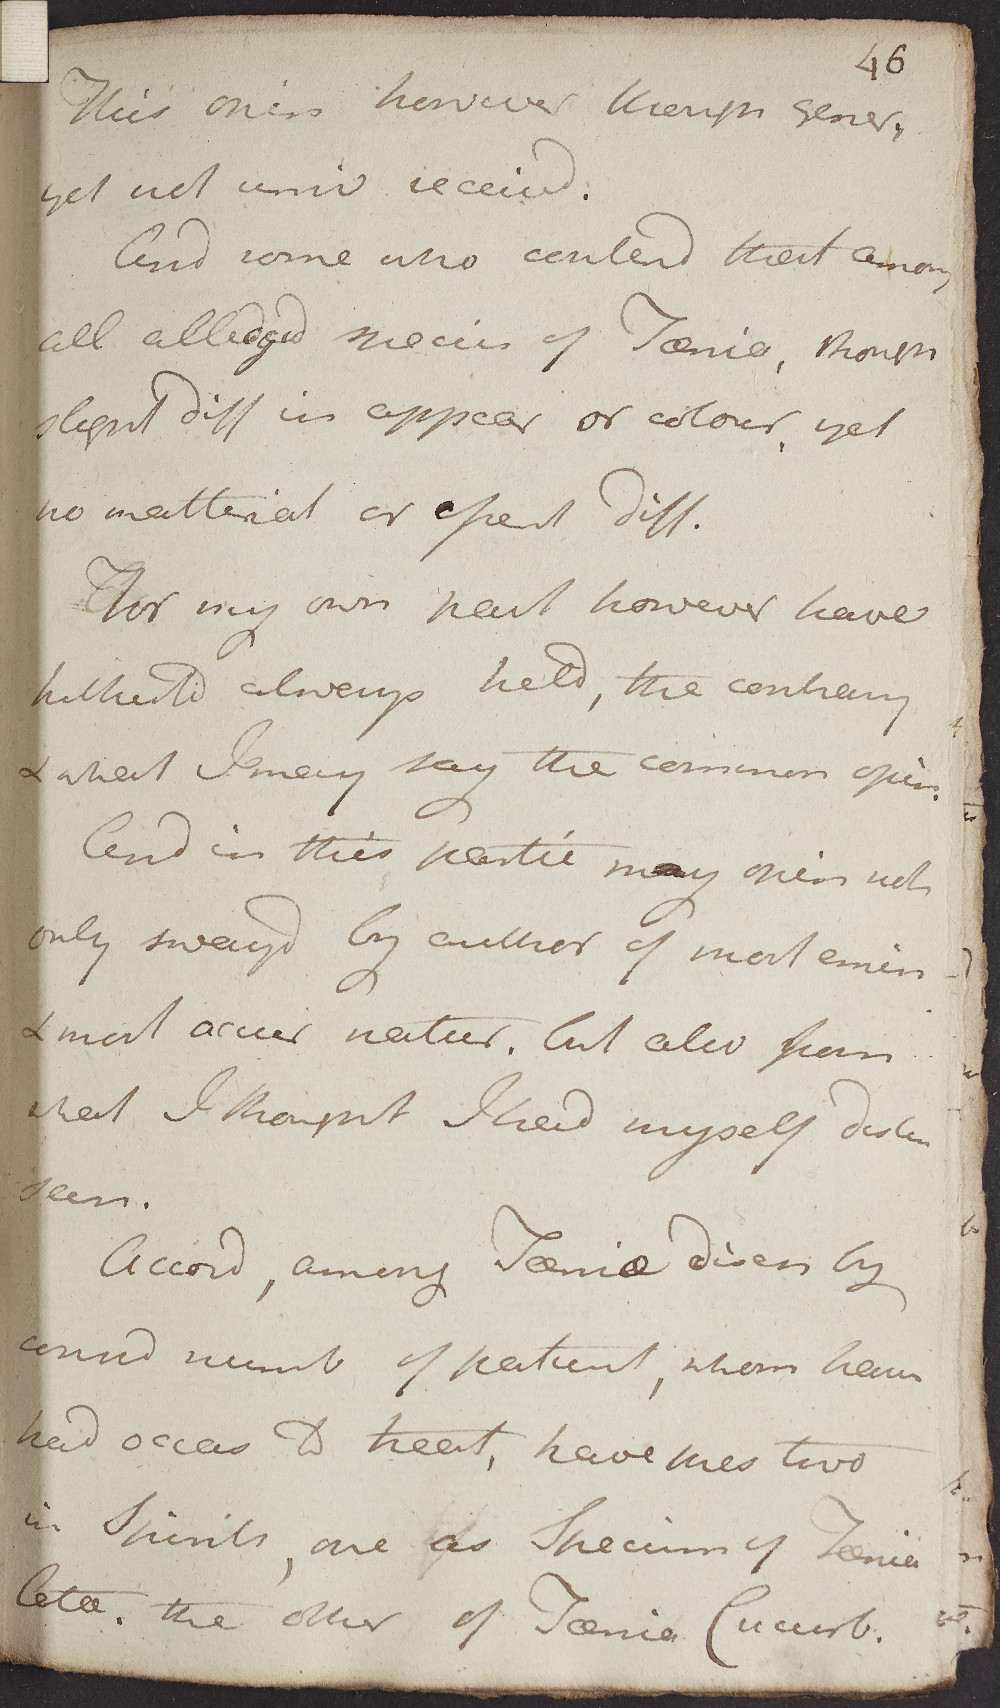 46
This opin however though gener,
yet not univ received.
And some who contend that among
all alledged species of Tænia, though
slight diff in appear or colour, yet
no matterial or essent diff.
For my own part however have
hitherto always held, the contrary
& what I may say the common opin.
And in this partic my opin not
only swayd by author of most emin
& most accur natur. but also from
what I thought I had myself
seen.
Accord, among Tæniæ discn by
consid numb of patient, whom have
had occas to treat, have pres two
in Spirits, one as Specimn of Tænia
lata. the other of Tænia Cucurb.